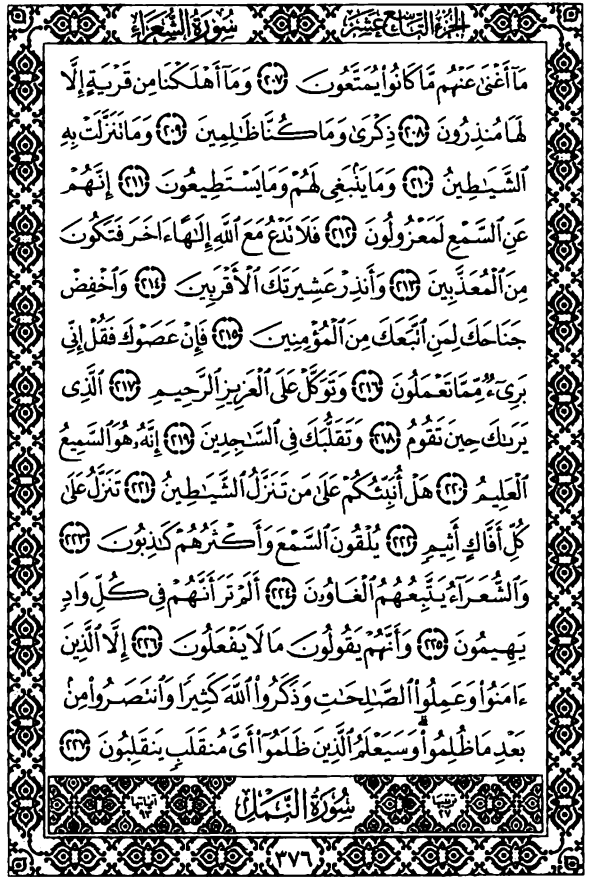 الجزء التاسع عشر
سورة الشعراء
مَآ أَغْنَىٰ عَنْهُم مَّا كَانُوا۟ يُمَتَّعُونَ ٢٠٧ وَمَآ أَهْلَكْنَا مِن قَرْيَةٍ إِلَّا
لَهَا مُنذِرُونَ ٢٠٨ ذِكْرَىٰ وَمَا كُنَّا ظَٰلِمِينَ ٢٠٩ وَمَا تَنَزَّلَتْ بِهِ
ٱلشَّيَٰطِينُ ٢١٠ وَمَا يَنۢبَغِى لَهُمْ وَمَا يَسْتَطِيعُونَ ٢١١ إِنَّهُمْ
عَنِ ٱلسَّمْعِ لَمَعْزُولُونَ ٢١٢ فَلَا تَدْعُ مَعَ ٱللَّهِ إِلَٰهًا ءَاخَرَ فَتَكُونَ
مِنَ ٱلْمُعَذَّبِينَ ٢١٣ وَأَنذِرْ عَشِيرَتَكَ ٱلْأَقْرَبِينَ ٢١٤ وَٱخْفِضْ
جَنَاحَكَ لِمَنِ ٱتَّبَعَكَ مِنَ ٱلْمُؤْمِنِينَ ٢١٥ فَإِنْ عَصَوْكَ فَقُلْ إِنِّى
بَرِىٓءٌ مِّمَّا تَعْمَلُونَ ٢١٦ وَتَوَكَّلْ عَلَى ٱلْعَزِيزِ ٱلرَّحِيمِ ٢١٧ ٱلَّذِى
يَرَىٰكَ حِينَ تَقُومُ ٢١٨ وَتَقَلُّبَكَ فِى ٱلسَّٰجِدِينَ ٢١٩ إِنَّهُۥ هُوَ ٱلسَّمِيعُ
ٱلْعَلِيمُ ٢٢٠ هَلْ أُنَبِّئُكُمْ عَلَىٰ مَن تَنَزَّلُ ٱلشَّيَٰطِينُ ٢٢١ تَنَزَّلُ عَلَىٰ
كُلِّ أَفَّاكٍ أَثِيمٍ ٢٢٢ يُلْقُونَ ٱلسَّمْعَ وَأَكْثَرُهُمْ كَٰذِبُونَ ٢٢٣
وَٱلشُّعَرَآءُ يَتَّبِعُهُمُ ٱلْغَاوُۥنَ ٢٢٤ أَلَمْ تَرَ أَنَّهُمْ فِى كُلِّ وَادٍ
يَهِيمُونَ ٢٢٥ وَأَنَّهُمْ يَقُولُونَ مَا لَا يَفْعَلُونَ ٢٢٦ إِلَّا ٱلَّذِينَ
ءَامَنُوا۟ وَعَمِلُوا۟ ٱلصَّٰلِحَٰتِ وَذَكَرُوا۟ ٱللَّهَ كَثِيرًا وَٱنتَصَرُوا۟ مِنۢ
بَعْدِ مَا ظُلِمُوا۟ ۗ وَسَيَعْلَمُ ٱلَّذِينَ ظَلَمُوٓا۟ أَىَّ مُنقَلَبٍ يَنقَلِبُونَ ٢٢٧
ترتيبها ٢٧ سُورَةُ النَّمْلِ آياتها ٩٣
٣٧٦